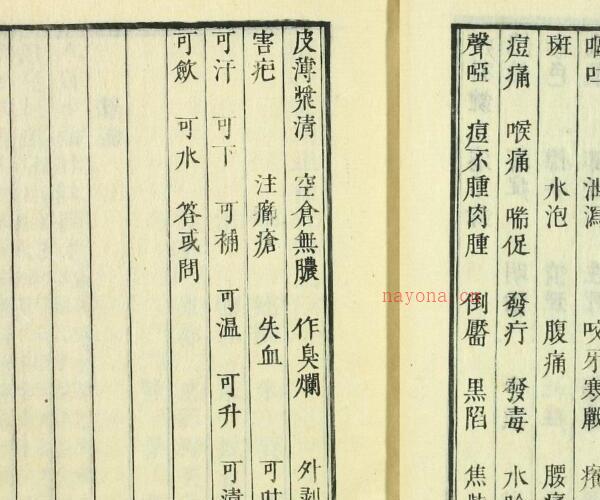 嘔吐 泄瀉 咬牙寒戰
斑 水泡 腹痛 腰
痘痛 喉痛 喘促 發疔 發毒 水
聲啞 痘不腫肉腫 倒靨 黑陷 焦
皮薄漿清 空倉無膿 作臭爛 外剝
害疤 注瘡 失血 可
可汗 可下 可補 可温 可升 可清
可斂 可水 答或問
nayona.cn